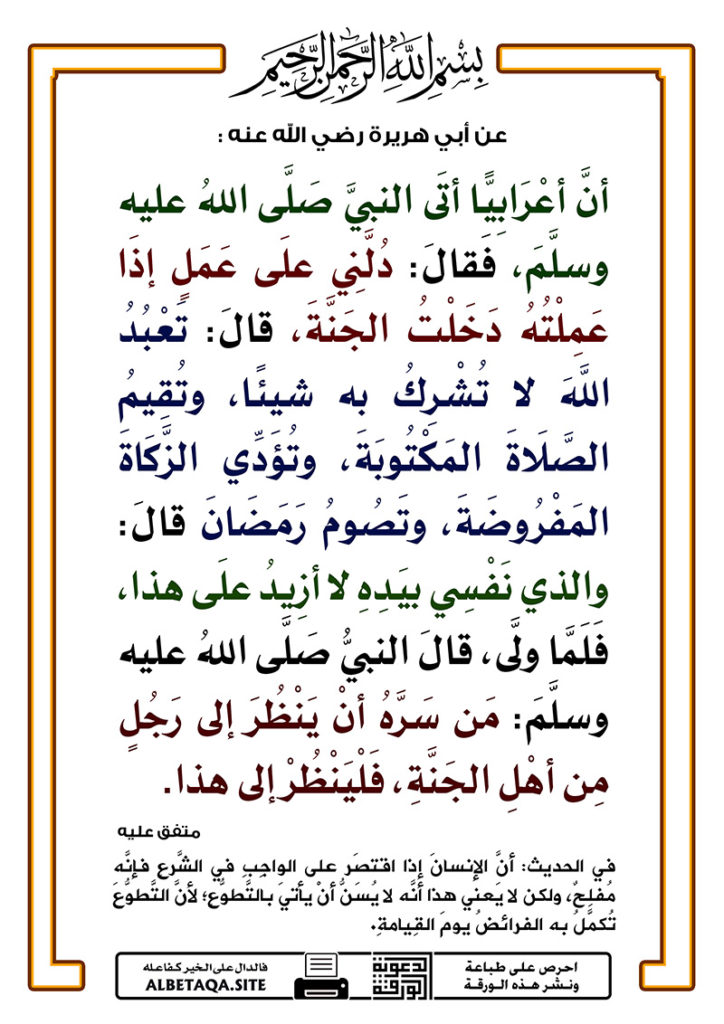 بِسْمِ اللَّهِ الرَّحْمَنِ الرَّحِيمِ
عن أبي هريرة رضي الله عنه :
أنَّ أعْرَابِيًّا أتَى النبيَّ صَلَّى اللهُ عليه
وسلَّمَ، فَقالَ: دُلَّنِي علَى عَمَلٍ إذَا
عَمِلْتُهُ دَخَلْتُ الجَنَّةَ، قالَ: تَعْبُدُ
اللَّهَ لا تُشْرِكُ به شيئًا، وتُقِيمُ
الصَّلَاةَ المَكْتُوبَةَ، وتُؤَدِّي الزَّكَاةَ
المَفْرُوضَةَ، وتَصُومُ رَمَضَانَ قالَ:
والذي نَفْسِي بيَدِهِ لا أزِيدُ علَى هذا،
فَلَمَّا ولَّى، قالَ النبيُّ صَلَّى اللهُ عليه
وسلَّمَ: مَن سَرَّهُ أنْ يَنْظُرَ إلى رَجُلٍ
مِن أهْلِ الجَنَّةِ، فَلْيَنْظُرْ إلى هذا.
متفق عليه
في الحديث: أنَّ الإنسانَ إذا اقتصَر على الواجبِ في الشَّرع فإنَّه
مُفلِحٌ، ولكن لا يَعني هذا أنَّه لا يُسَنُّ أنْ يأتيَ بالتَّطوُّع؛ لأنَّ التَّطوُّعَ
تُكمَّلُ به الفرائضُ يومَ القِيامةِ.
احرص على طباعة
ونشر هذه الورقة
الورقة الدعوية
فالدال على الخير كفاعله
ALBETAQA.SITE